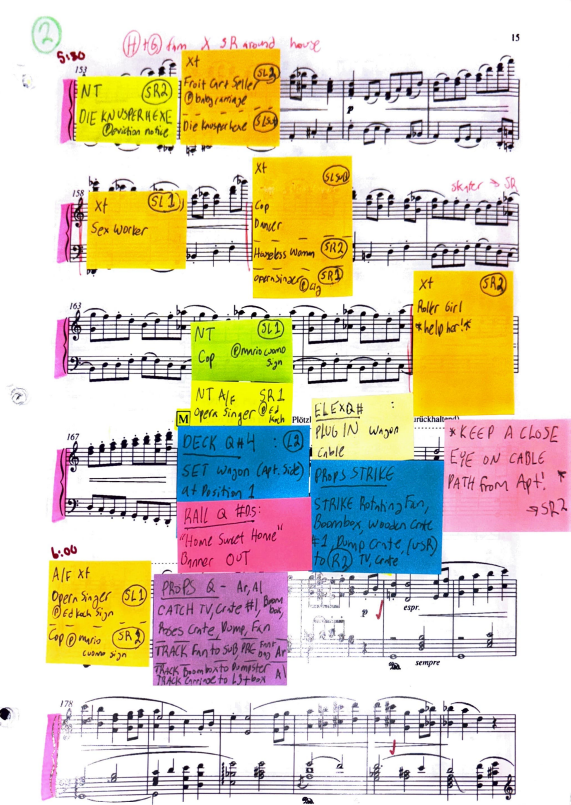 2
5:30
H+G fam X SR around house
15
153
NT SR2
DIE KNUSPERHEXE
℗ eviction notice
Xt SL2
Fruit Cart Seller
℗ baby carriage
Die Knusperhexe
158
Xt SL1
Sex Worker
Xt
Cop
Dancer
Homeless Woman SR2
Opera Singer ℗ cig SR1
skater → SR
163
NT SL1
Cop ℗ mario cuomo
sign
Xt SR2
Roller Girl
*help her!*
NT A/F SR1
Opera Singer ℗ Ed
Koch
M
Plötzl
urückhaltend)
ELEX Q# :
PLUG IN Wagon
Cable
167
DECK Q#4 : L2
SET Wagon (Apt. Side)
at Position 1
PROPS STRIKE
STRIKE Rotating Fan,
Boombox, Wooden Crate
#1, Dump Crate, (USR)
to (R2) TV, Crate
*KEEP A CLOSE
EYE ON CABLE
PATH from Apt! *
→ SR2
RAIL Q #R5:
"Home Sweet Home"
Banner OUT
6:00
A/F Xt
Opera Singer SL1
℗ Ed Koch Sign
Cop ℗ mario
cuomo sign
PROPS Q - Ar, Al
CATCH TV, Crate #1, Boom
box,
Roses Crate, Dump, Fan
TRACK Fan to SUB PRE Ar
TRACK Boombox to Dumpster
TRACK Carriage to L3 + box Al
p
espr.
sempre
178